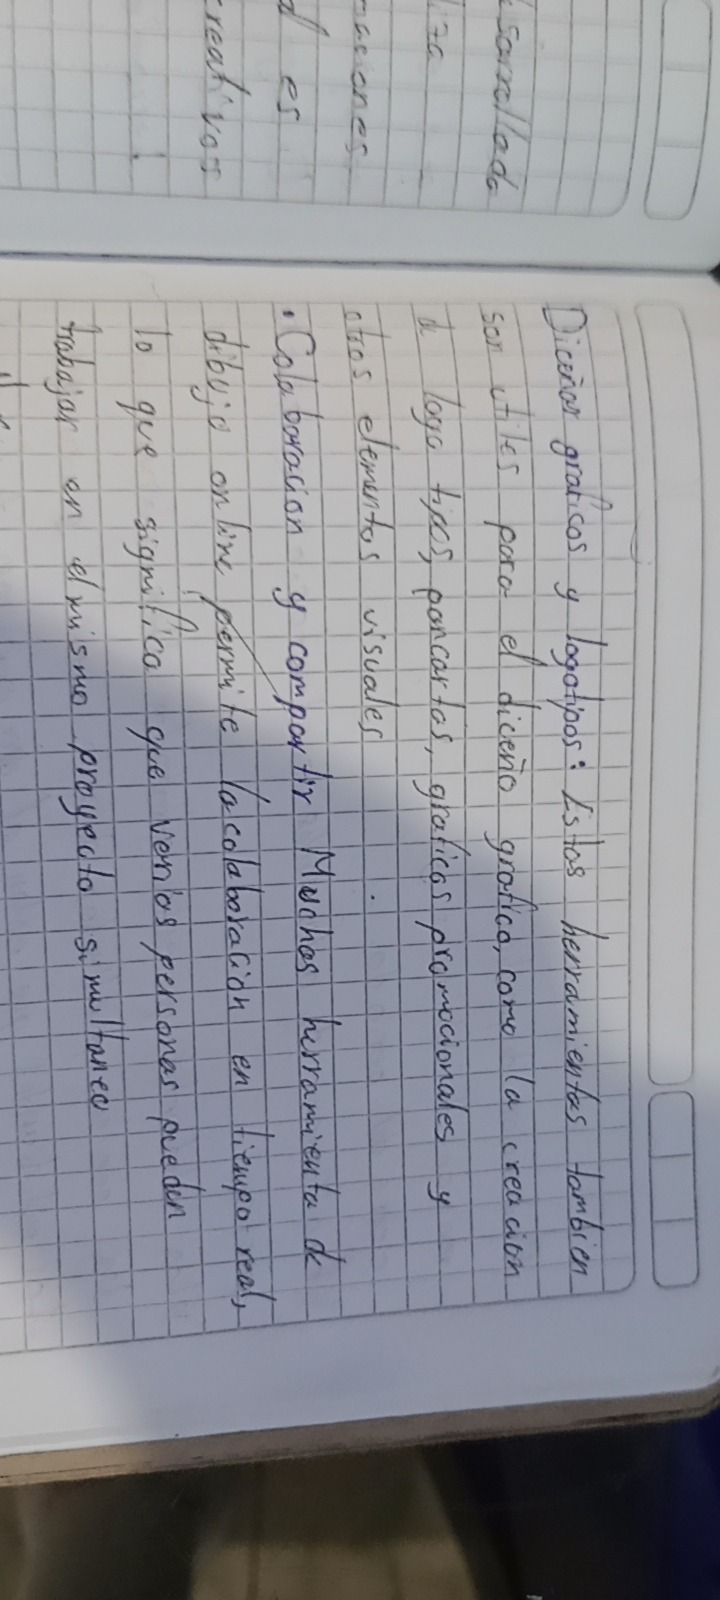 sarrollada
iza
maciones
d es
creativos
Diceñar graficos y logotipos: Estas herramientas tambien
son utiles para el diceño grafico, como la creacion
de logo tipos, pancartas, graficos promocionales y
otros elementos visuales
• Colaboracion y compartir Muchas herramienta de
dibujo online permite la colaboracion en tiempo real,
lo que significa que verias personas pueden
trabajar en el mismo proyecto simultaneo